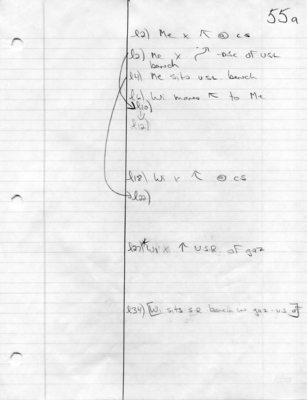 55a
l2) Me x ↖ @ cs
l2) Me x ↗ DSC of USL
bench
l4) Me sits USL bench
l6) Wi moves ↖ to Me
l10)
l12)
l18) Wi x ↖ @ cs
l22)
l27) Wi x ↑ USR of gaz
l34) [Wi sits SR bench gaz US of]